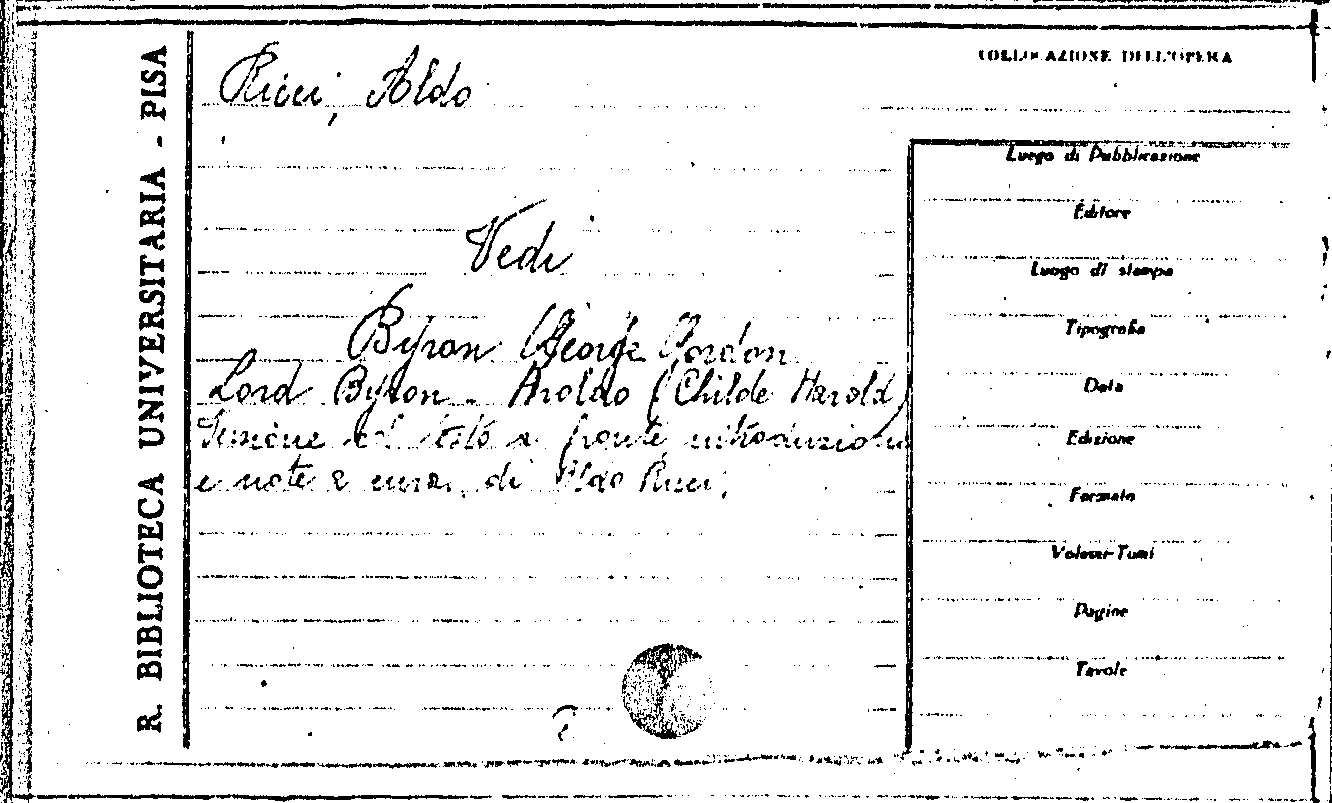 R. BIBLIOTECA UNIVERSITARIA - PISA
COLLOCAZIONE DELL'OPERA
Ricci, Aldo
Vedi
Byron George Gordon
Lord Byron - Aroldo (Childe Harold)
Versione col testo a fronte, introduzione
e note a cura di Aldo Ricci,
Luogo di Pubblicazione
Editore
Luogo di stampa
Tipografia
Data
Edizione
Formato
Volumi-Tomi
Pagine
Tavole